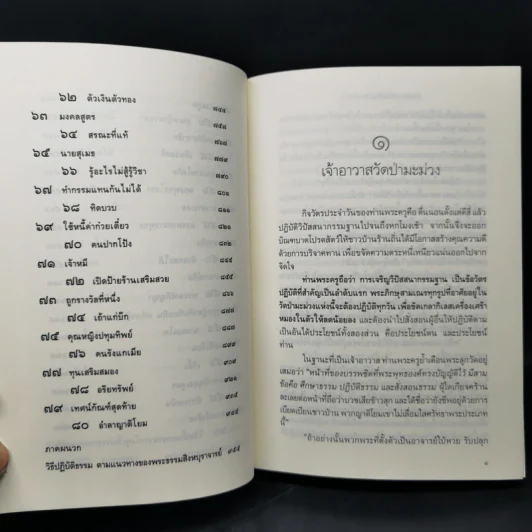 ๖๒ ตัวเงินตัวทอง ๗๔๔
๖๓ มงคลสูตร ๗๕๘
๖๔ สรณะที่แท้
๖๕ นายสุเมธ
๖๖ รู้อะไรไม่สู้รู้วิชา
๖๗ ทำกรรมแทนกันไม่ได้
๖๘ ทิดบวบ
๖๙ ใช้หนี้ค่าก๋วยเตี๋ยว
๗๐ คนปากโป้ง
๗๑ เจ้าหมี
๗๒ เปิดป้ายร้านเสริมสวย
๗๓ ถูกรางวัลที่หนึ่ง
๗๔ เถ้าแก่บ๊ก
๗๕ คุณหญิงปทุมทิพย์
๗๖ คนรังแกเมีย
๗๗ ทุนเสริมสมอง
๗๘ อริยทรัพย์
๗๙ เทศน์กัณฑ์สุดท้าย
๘๐ อำลาญาติโยม
ภาคผนวก
วิธีปฏิบัติธรรม ตามแนวทางของพระธรรมสิงหบุราจารย์
๑
เจ้าอาวาสวัดป่ามะม่วง
กิจวัตรประจำวันของท่านพระครูคือ ตื่นนอนตั้งแต่ตีสี่ แล้ว
ปฏิบัติวิปัสสนากรรมฐานไปจนถึงหกโมงเช้า จากนั้นจึงออก
บิณฑบาตโปรดสัตว์ให้ชาวบ้านร้านถิ่นได้มีโอกาสสร้างคุณความดี
ด้วยการบริจาคทาน เพื่อขจัดความตระหนี่เหนียวแน่นออกไปจาก
จิตใจ
ท่านพระครูถือว่า การเจริญวิปัสสนากรรมฐาน เป็นข้อวัตร
ปฏิบัติที่สำคัญเป็นลำดับแรก พระภิกษุสามเณรทุกรูปที่อาศัยอยู่ใน
วัดป่ามะม่วงแห่งนี้จะต้องปฏิบัติทุกวัน เพื่อขัดเกลากิเลสเครื่องเศร้า
หมองในตัวให้ลดน้อยลง และต้องนำไปสั่งสอนผู้อื่นให้ปฏิบัติตาม
เป็นอันได้ประโยชน์ทั้งสองส่วน คือประโยชน์ตน และ ประโยชน์
ท่าน
ในฐานะที่เป็นเจ้าอาวาส ท่านพระครูย้ำเตือนพระลูกวัดอยู่
เสมอว่า "หน้าที่ของบรรพชิตที่พระพุทธองค์ทรงบัญญัติไว้ มีสาม
ข้อคือ ศึกษาธรรม ปฏิบัติธรรม และสั่งสอนธรรม ผู้ใดเกียจคร้าน
ละเลยต่อหน้าที่ถือว่าบวชเสียข้าวสุก และได้ชื่อว่ายังชีพอยู่ด้วยการ
เบียดเบียนชาวบ้าน พวกญาติโยมเขาไม่เลื่อมใสศรัทธาพระประเภท
นี้"
"ถ้าอย่างนั้นพวกพระที่ตั้งตัวเป็นอาจารย์ใบ้หวย รับปลุก